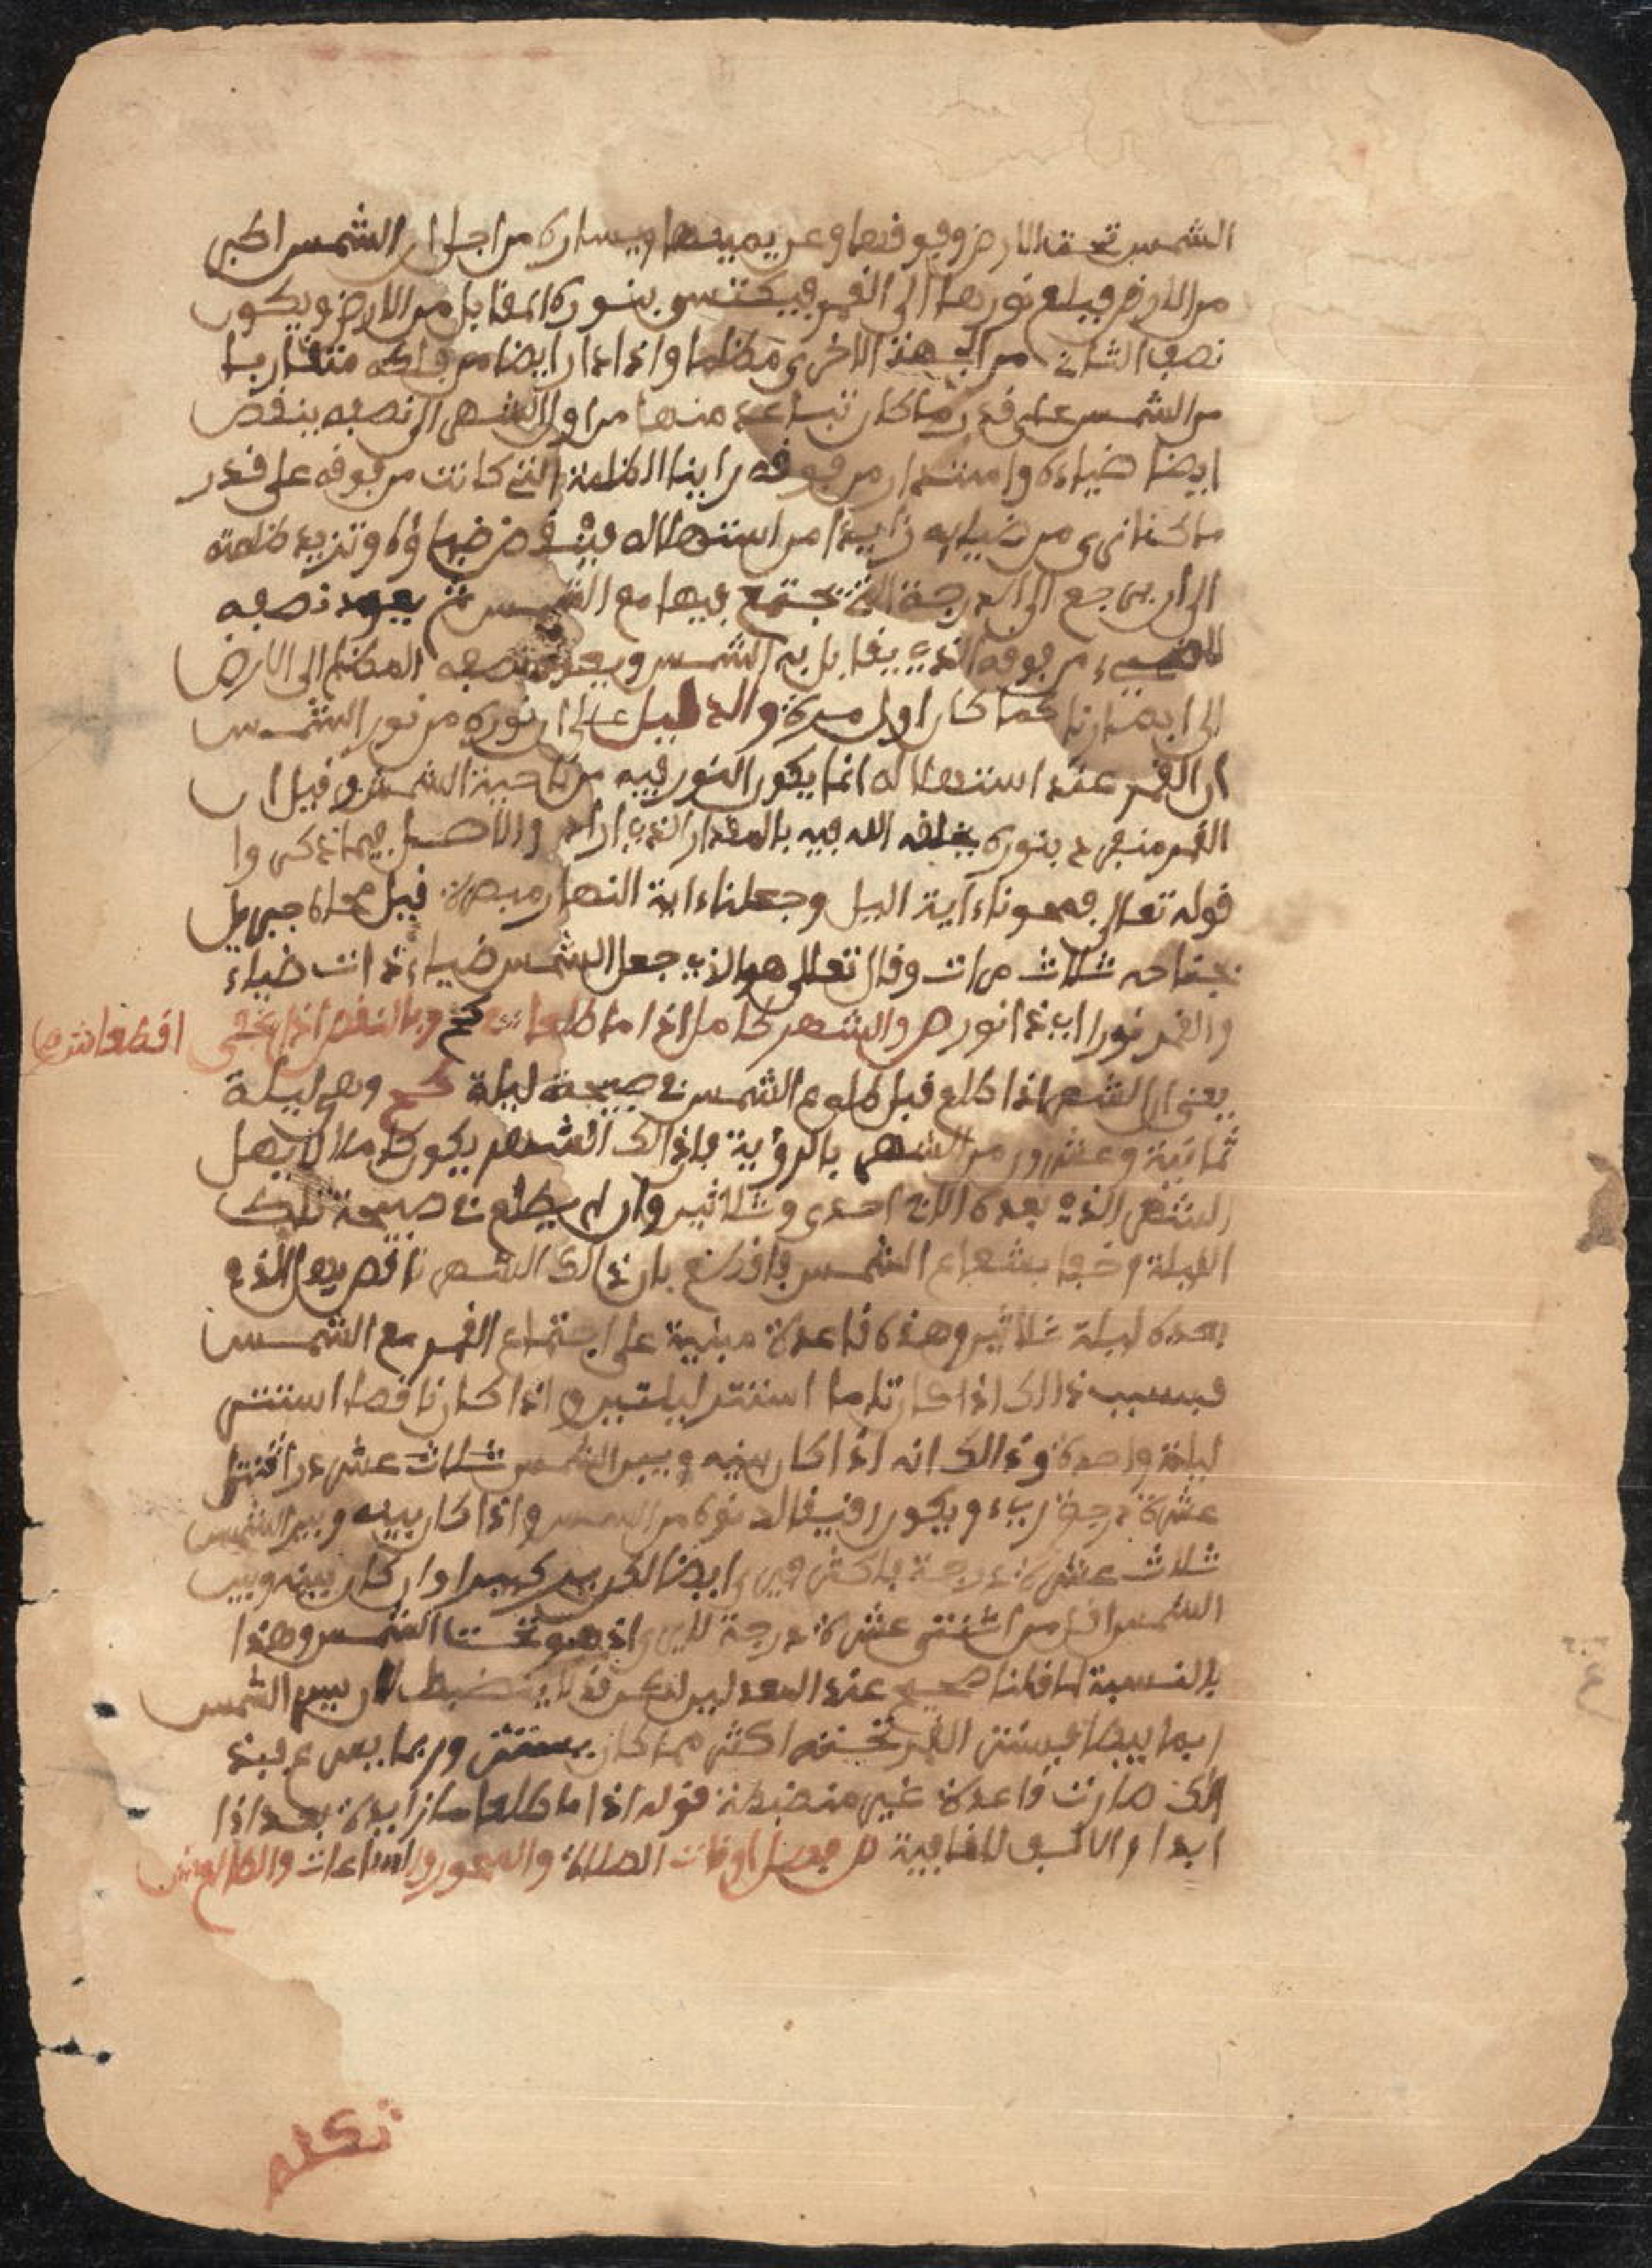 الشمس تحت الارض وفوقها وعن يمينها ويساره من اجل ان الشمس اكبر
من الارض فيبلغ نورها الى القمر فيكتسي بنوره المقابل من الارض ويكون
نصف الثاني من الجهة الاخرى مظلما واذا دار ايضا من فلكه متقاربا
من الشمس على قدر ما كان تباعد منها من اول الشهر الى نصفه ينقص
ايضا ضياءه وامتدار من فوقه راينا الظلمة التي كانت من فوقه على قدر
ما كنا نرى من ضيائه زايدا من استهلاله فينقص ضياؤه وتزيد ظلمته
الى ان يرجع الى الدرجة التي تجتمع فيها مع الشمس ثم يعود نصفه
المضيء من فوقه الذي يقابل به الشمس ويعود نصفه المظلم الى الارض
الى ابصارنا كما كان اول مرة والدليل على ان نوره من نور الشمس
ان القمر عند استهلاله انما يكون النور فيه من ناحية الشمس وقيل ان
القمر منفرد بنوره يخلقه الله فيه بالمقدار الذي اراد والاصل فيما ذكروا
قوله تعالى فمحونا ءاية اليل وجعلنا ءاية النهار مبصرة قيل محاه جبريل
بجناحه ثلاث مرات وقال تعالى هو الذي جعل الشمس ضياء ذات ضياء
والقمر نورا اي ذا نور ص والشهر كامل اذا ما طلعا في كح وبالنقص اذا يخفى اقطعا ش
يعني ان الشهر اذا طلع قبل طلوع الشمس في صبيحة ليلة كح وهي ليلة
ثمانية وعشرون من الشهر بالرؤية فاذالك الشهر يكون كاملا لا يهل
الشهر الذي بعده الا في احدى وثلاثين وان لم يطلع في صبيحة تلك
الليلة وخفيا بشعاع الشمس فاقطع بان ذالك الشهر ناقص يهل الذي
بعده ليلة ثلاثين وهذه قاعدة مبنية على اجتماع القمر مع الشمس
فبسبب ذالك اذا كان تاما استتر ليلتين واذا كان ناقصا استتر
ليلة واحدة وذالك انه اذا كان بينه وبين الشمس ثلاث عشر او اثنتا
عشرة درجة ريء ويكون رقيقا لدنوه من الشمس واذا كان بينه وبين الشمس
ثلاث عشرة درجة فاكثر فيرى ايضا لكن يرى كبيرا وان كان بينه وبين
الشمس اقل من اثنتي عشرة درجة لم ير اذ هو تحت الشمس وهذا
بالنسبة لما قلنا صحيح عند المعدلين لكن قد لا ينضبط لان سير الشمس
ربما يبطا فيستتر القمر تحته اكثر مما كان يستتر وربما يسرع فبذ
الك صارت قاعدة غير منضبطة قوله اذا ما طلعا ما زايدة بعد اذا
ابدا والالف للقافية ص فصل اوقات الصلاة والسحور والساعات والطالع ش
تكلم